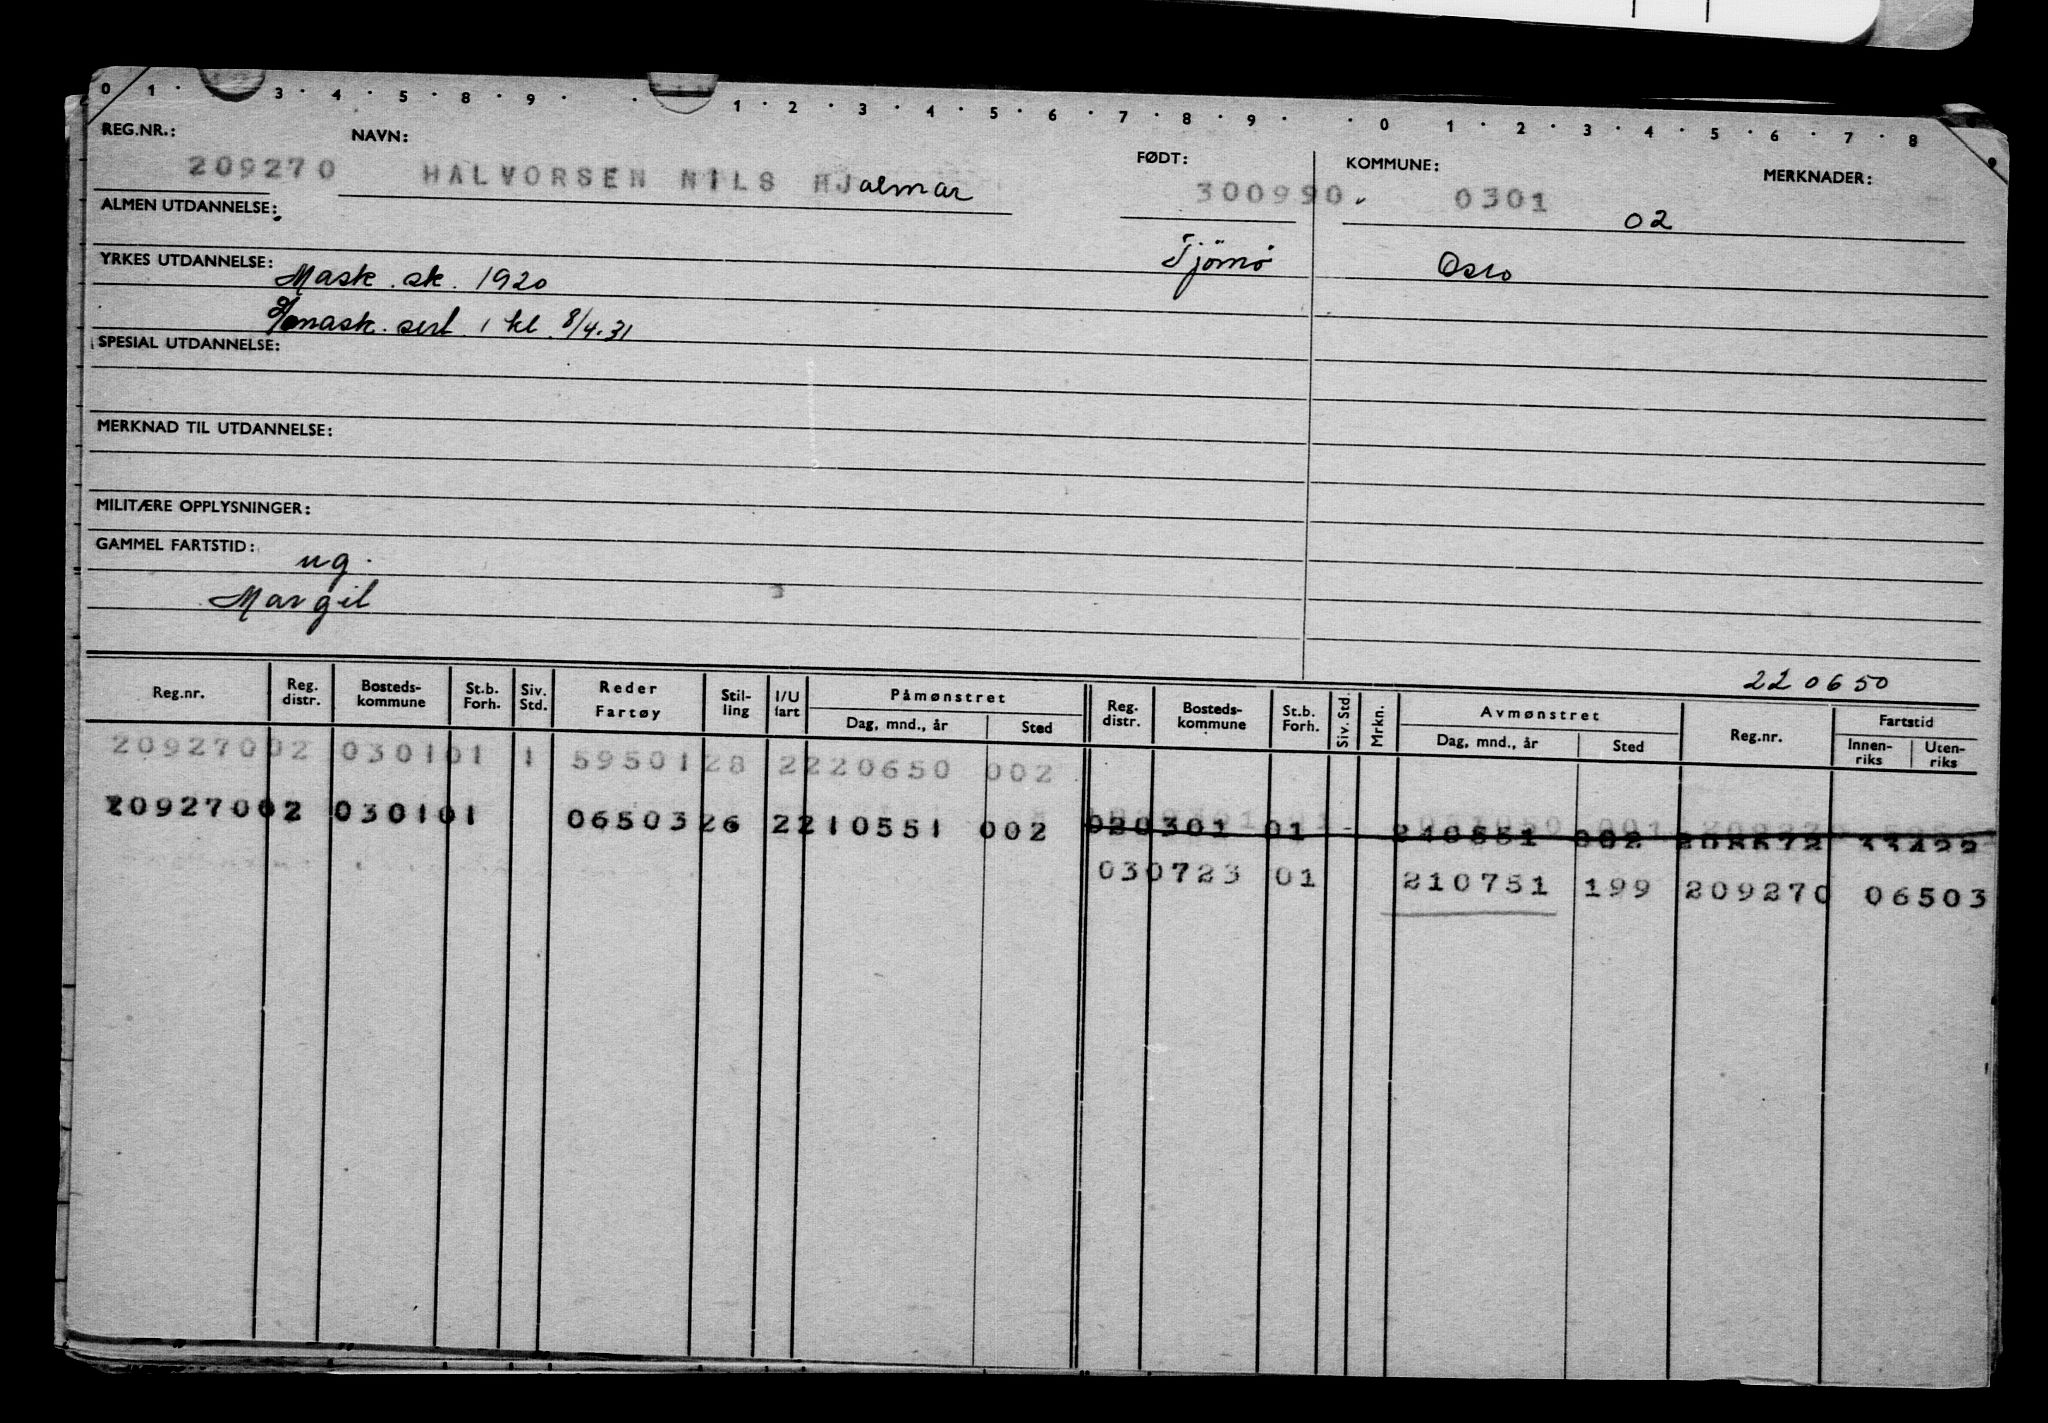 0 1 · 3 · 4 · 5 · 8 · 9 · · 1 · 2 · 3 · 4 · 5 · 6 · 7 · 8 · 9 · · 0 · 1 · 2 · 3 · 4 · 5 · 6 · 7 · 8 9
REG.NR.: NAVN: FØDT: KOMMUNE: MERKNADER:
209270 HALVORSEN NILS HJalmar 300990 0301 02
ALMEN UTDANNELSE:
Tjömö Oslo
YRKES UTDANNELSE: Mask. sk. 1920
mask. sert 1 kl. 8/4.31
SPESIAL UTDANNELSE:
MERKNAD TIL UTDANNELSE:
MILITÆRE OPPLYSNINGER:
GAMMEL FARTSTID: ug.
Margil
220650
Reg.nr. Reg. distr. Bosteds-kommune St.b. Forh. Siv. Std. Reder Fartøy Stil-ling I/U fart Påmønstret Dag, mnd., år Sted Reg. distr. Bosteds-kommune St.b. Forh. Siv. Std. Mrkn. Avmønstret Dag, mnd., år Sted Reg.nr. Fartstid Innen-riks Uten-riks
20927002 030101 1 5950128 2220650 002
20927002 030101 0650326 2210551 002 020301 01 240551 002
030723 01 210751 199 209270 06503